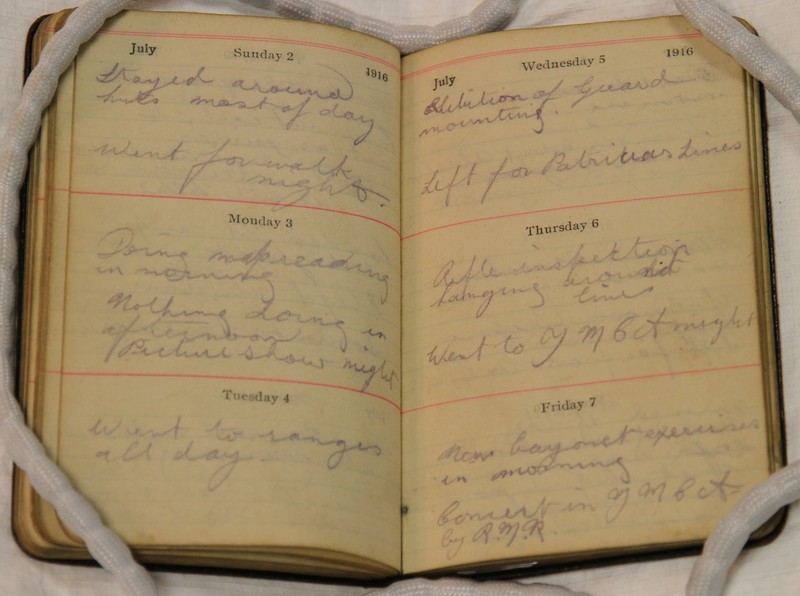 July Sunday 2 1916
Stayed around
huts most of day
Went for walk
night.
Monday 3
Doing mapreading
in morning
Nothing doing in
afternoon
Picture show night
Tuesday 4
Went to ranges
all day
July Wednesday 5 1916
of Guard
mounting.
Left for Lines
Thursday 6
Rifle inspection
hanging around
lines
Went to Y M C A night
Friday 7
New bayonet exercises
in morning
Concert in Y M C A
by R.M.R.